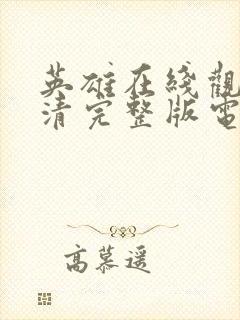 英雄在綫觀
清完整版電
高慕遥